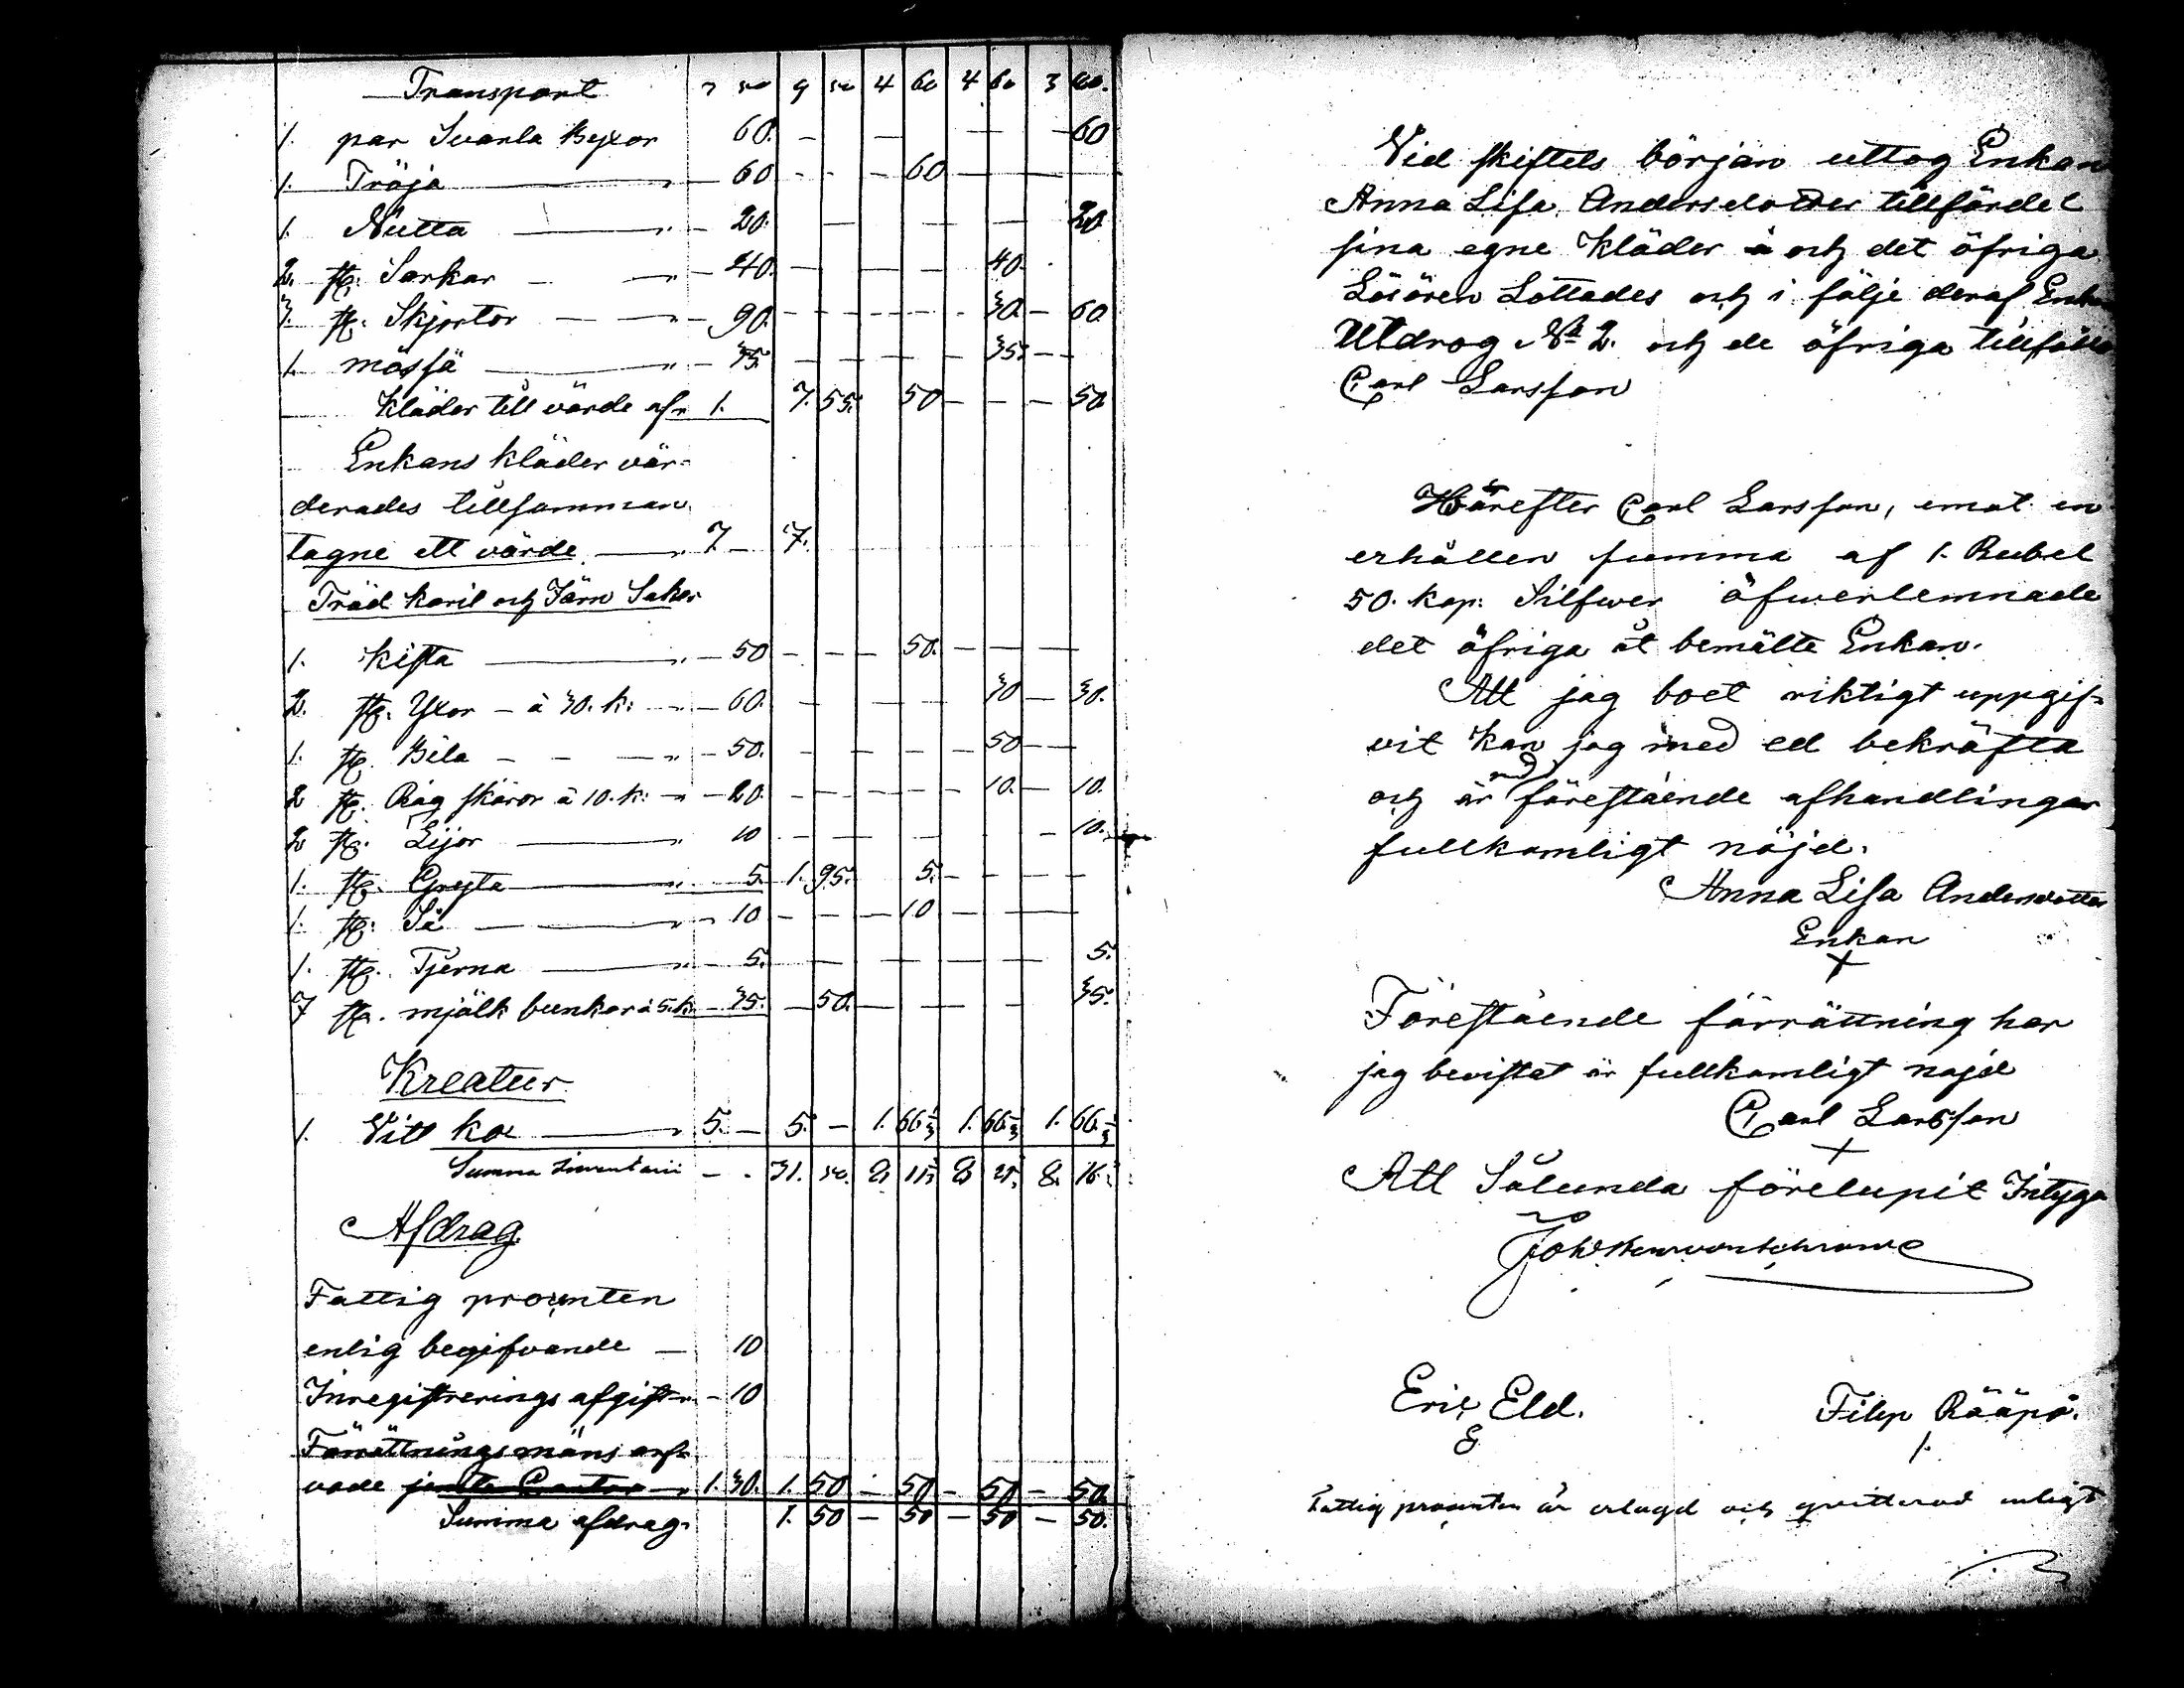 Transport 7 50 9 50 4 60 4 60 3 60.
1. par Svarla Byxor 60. — — — — 60
1. Tröja — " — 60 - - — 60 — — —
1. Nutta — " — 20. — — — — 20
2. st. Sarkar — " — 40. — — — 40. -
3. st. Skjortor — — " — 90. - - - - - 30. — 60
1. mössa — " — 35. - - - - 35. — —
Kläder till värde af " 1. 7. 55. 50 — — — 50.
Enkans kläder vär-
derades tillsamman
tagne ett värde — " 7. — 7.
Träd karil och Järn Saker
1. kista — " — 50 — — — 50. — — —
2. st. Yxor — à 30. k: — " — 60. — — — 30 — 30.
1. st. Bila — — — " — 50. — — — — 50 — —
2 st. Råg skäror à 10. k: — " — 20. — — — — — 10. — 10.
2 st. Lijor — " 10 — — — — 10.
1. st. Gryta — " 5. 1. 95. 5. — — — —
1. st. Så — " — 10 — — — 10 — —
1. st. Tjerna — " — 5. — — — — — 5.
7 st. mjölk bunkar à 5. k. — 35. — 50. — — — 35.
Kreatur
1. Vitt ko — " 5. — 5. — 1. 66 1/3 1. 66 1/3 1. 66 1/3
Summa — - 31. 50. 8. 8. 8. 16
Afdrag.
Fattig procenten
enlig begifvande — 10
Inregistrerings afgift " — 10
Förrättningsmäns arf-
vode 1. 30. 1. 50 — 50 — 50 — 50.
Summa afdrag. 1. 50 — 50 — 50 — 50.
Vid skiftets början uttog Enkan
Anna Lisa Andersdotter
sina egne kläder å och det öfriga
Lösören Lottades och i följe deraf
Utdrog No 2. och de öfriga
Carl Larsson
Härefter Carl Larsson, emot en
erhållen summa af 1. Rubel
50. kop: Silfwer öfwerlemnade
det öfriga åt bemälte Enkan.
Att jag boet riktigt uppgif-
vit kan jag med ed bekräfta
och är med förestående afhandlingar
fullkomligt nöjd.
Anna Lisa Andersdotter
Enkan
X
Förestående förrättning har
jag bevistat är fullkomligt nöjd
Carl Larsson
X
Att Sålunda förelupit Intyga
Eric Eld. Filip Rääpö.
Fattig procenten är erlagd och qvitterad enligt